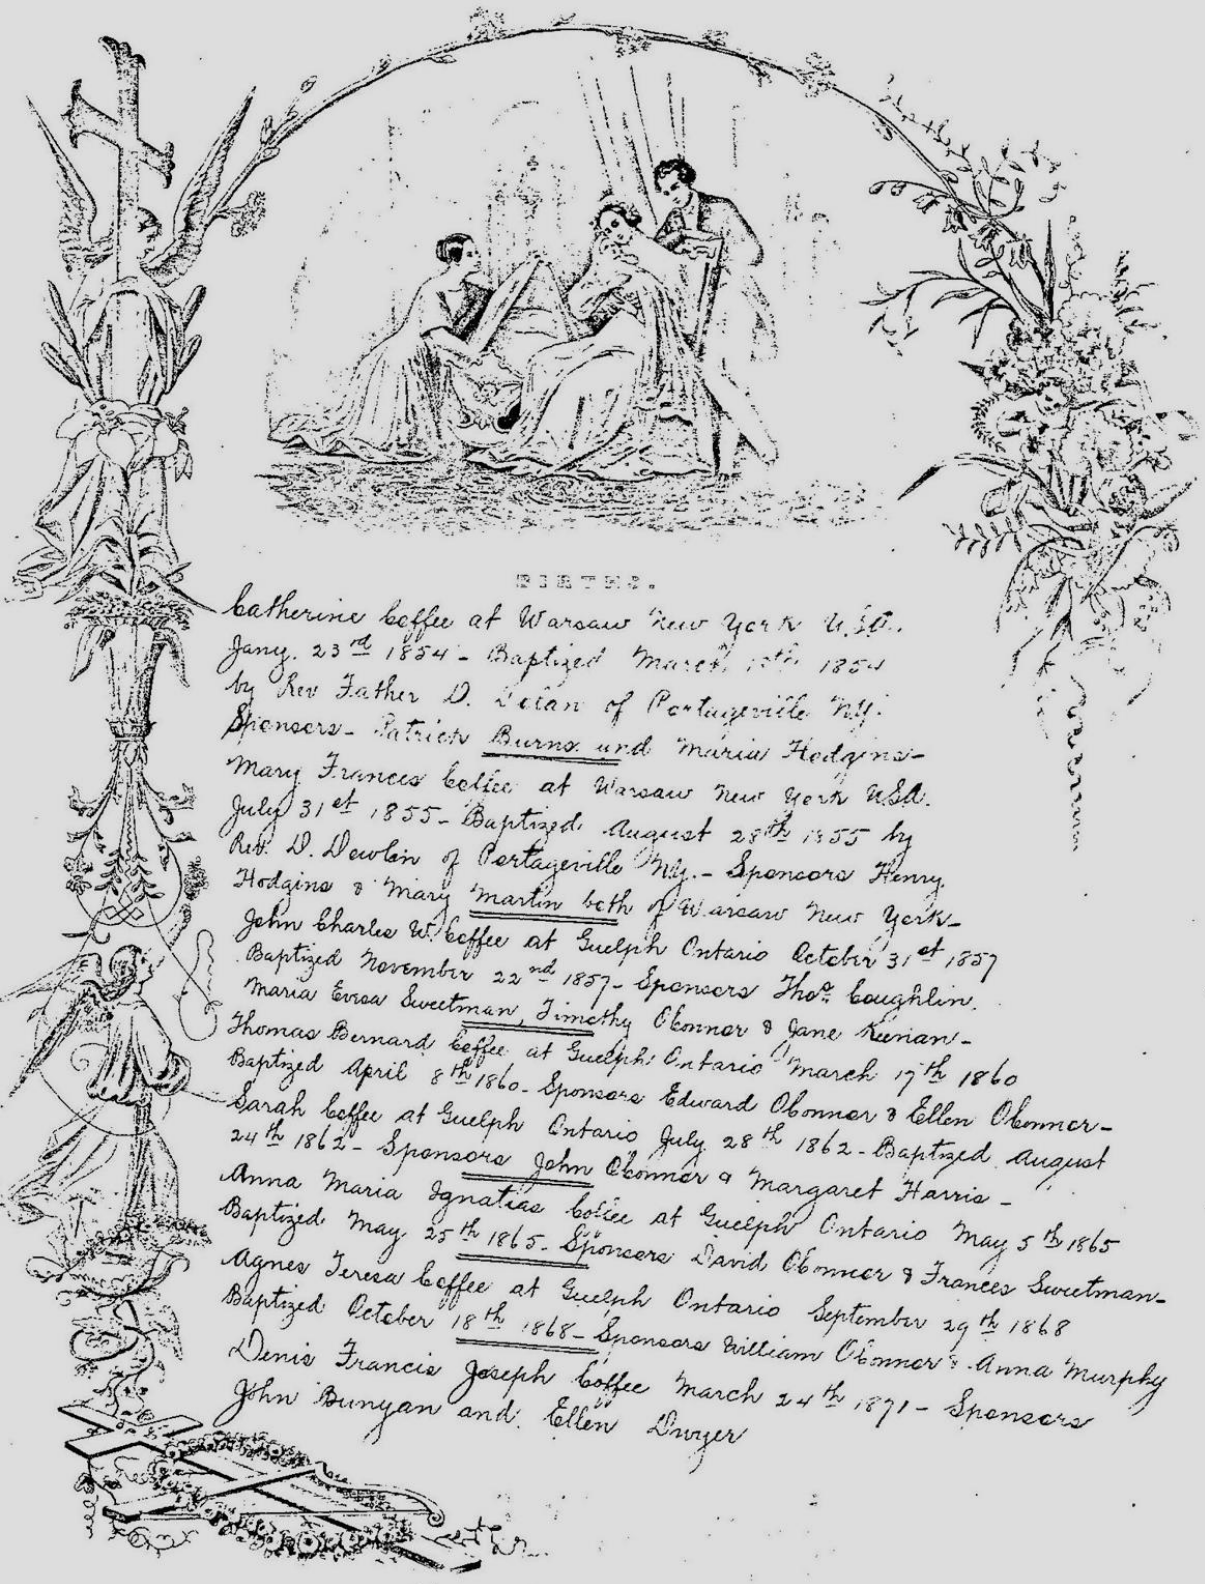 BIRTHS.
Catherine Coffee at Warsaw New York U.S.A.
Jany. 23rd 1854 - Baptized March 1854
by Rev Father D. of Portageville N.Y.
Sponsors - Patrick Burns and Maria Hodgins -
Mary Frances Coffee at Warsaw New York USA.
July 31st 1855 - Baptized August 28th 1855 by
Rev. D. Dowlin of Portageville N.Y. - Sponsors Henry
Hodgins & Mary Martin both of Warsaw New York -
John Charles W. Coffee at Guelph Ontario October 31st 1857
Baptized November 22nd 1857 - Sponsors Thos Coughlin.
Maria Sweetman, Timothy OConnor & Jane Keenan -
Thomas Bernard Coffee at Guelph Ontario March 17th 1860
Baptized April 8th 1860 - Sponsors Edward OConnor & Ellen OConnor -
Sarah Coffee at Guelph Ontario July 28th 1862 - Baptized August
24th 1862 - Sponsors John OConnor & Margaret Harris -
Anna Maria Ignatias Coffee at Guelph Ontario May 5th 1865
Baptized May 25th 1865 - Sponsors David OConnor & Frances Sweetman -
Agnes Teresa Coffee at Guelph Ontario September 29th 1868
Baptized October 18th 1868 - Sponsors William OConnor & Anna Murphy
Denis Francis Joseph Coffee March 24th 1871 - Sponsors
John Bunyan and Ellen Dwyer